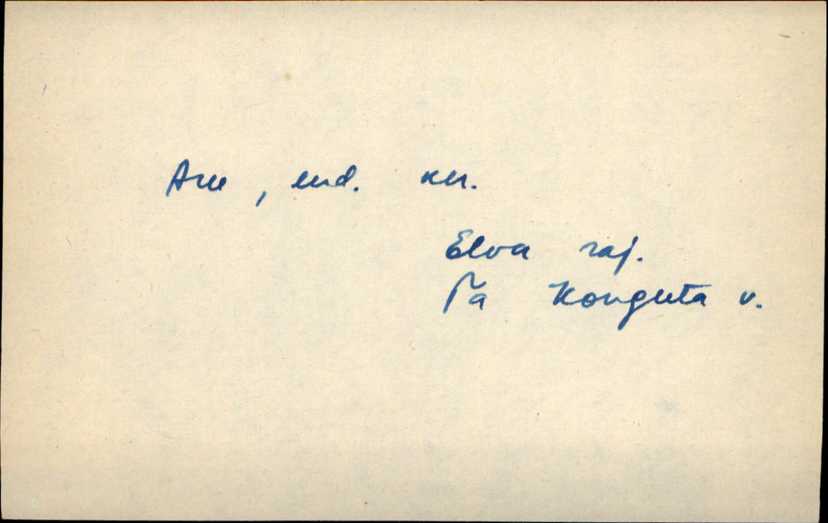 Aru, end. kr.
Elva raj.
Pa Konguta v.